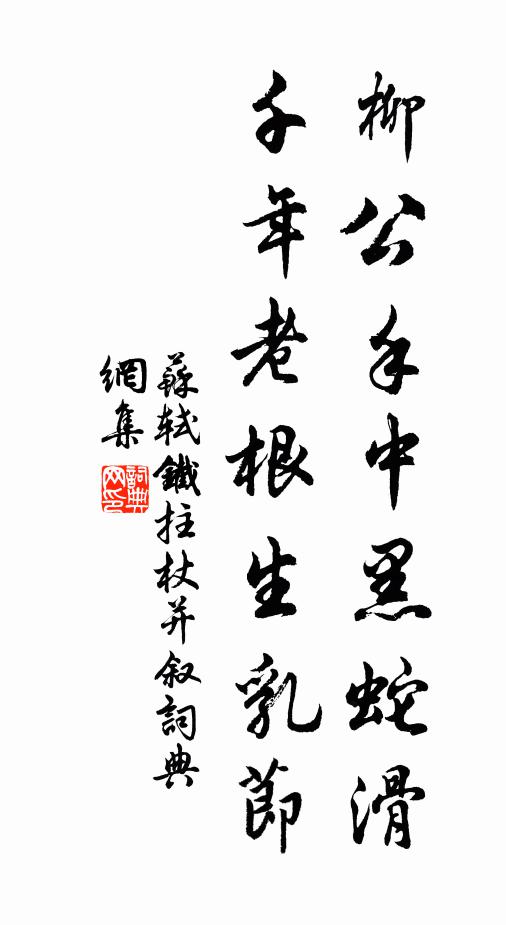 柳公手中黑蛇滑
千年老根生乳節
蘇軾鐵拄杖并叙詞典
網集
詞典網印